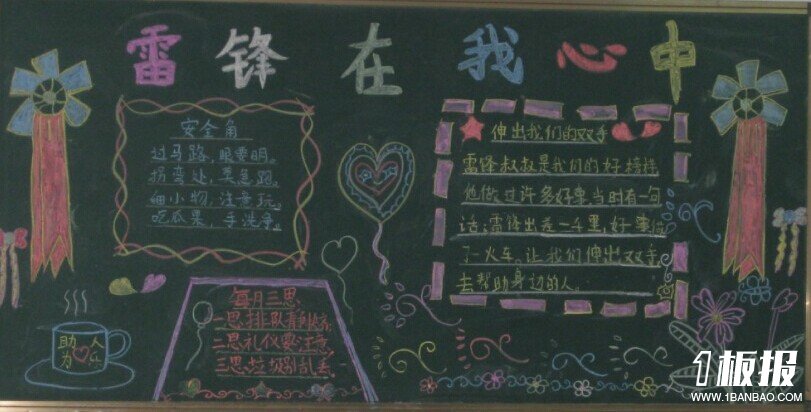 雷锋在我心中
安全角
过马路，眼要明。
拐弯处，莫急跑。
细小物，注意玩。
吃瓜果，手洗净。
伸出我们的双手
雷锋叔叔是我们的好榜样
他做过许多好事，当时有一句
话：雷锋出差一千里，好事做
了一火车。让我们伸出双手，
去帮助身边的人。
每月三思
一思排队
二思礼仪
三思垃圾别乱丢
助人
为乐
1板报
WWW.1BANBAO.COM